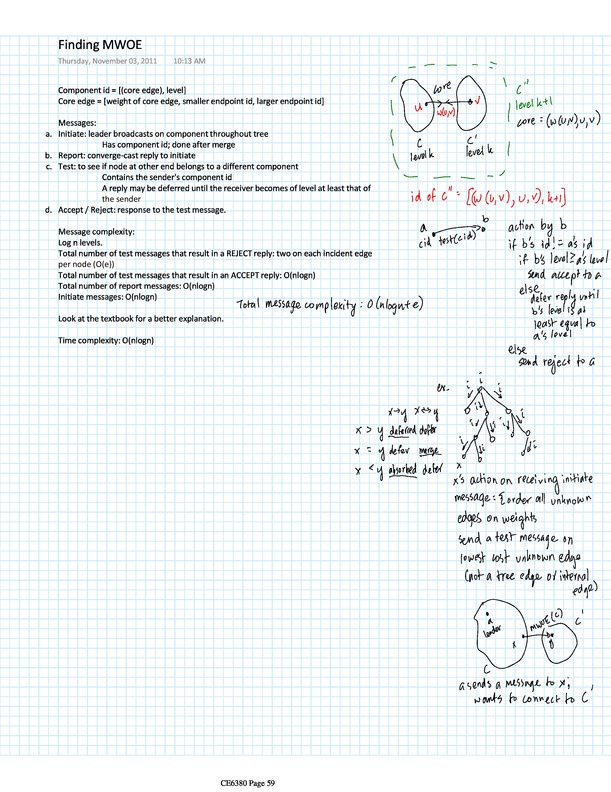 Finding MWOE
Thursday, November 03, 2011 10:13 AM
Component id = [(core edge), level]
Core edge = [weight of core edge, smaller endpoint id, larger endpoint id]
Messages:
a. Initiate: leader broadcasts on component throughout tree
Has component id; done after merge
b. Report: converge-cast reply to initiate
c. Test: to see if node at other end belongs to a different component
Contains the sender's component id
A reply may be deferred until the receiver becomes of level at least that of
the sender
d. Accept / Reject: response to the test message.
Message complexity:
Log n levels.
Total number of test messages that result in a REJECT reply: two on each incident edge
per node (O(e))
Total number of test messages that result in an ACCEPT reply: O(nlogn)
Total number of report messages: O(nlogn)
Initiate messages: O(nlogn)
Total message complexity: O(nlogn+e)
Look at the textbook for a better explanation.
Time complexity: O(nlogn)
core
u
v
w(u,v)
C
level k
C'
level k
C''
level k+1
core = (w(u,v),u,v)
id of C'' = [(w(u,v),u,v),k+1]
a
b
cid
test(cid)
action by b
if b's id != a's id
if b's level ≥ a's level
send accept to a
else
defer reply until
b's level is at
least equal to
a's level
else
send reject to a
ex.
i
i
i
i
i
i
i
i
i
x
x→y x↔y
x > y deferred defer
x = y defer merge
x < y absorbed defer
x's action on receiving initiate
message: {order all unknown
edges on weights
send a test message on
lowest cost unknown edge
(not a tree edge or internal
edge)
a
leader
x
MWOE(C)
y
C'
C
a sends a message to x;
wants to connect to C'
CE6380 Page 59